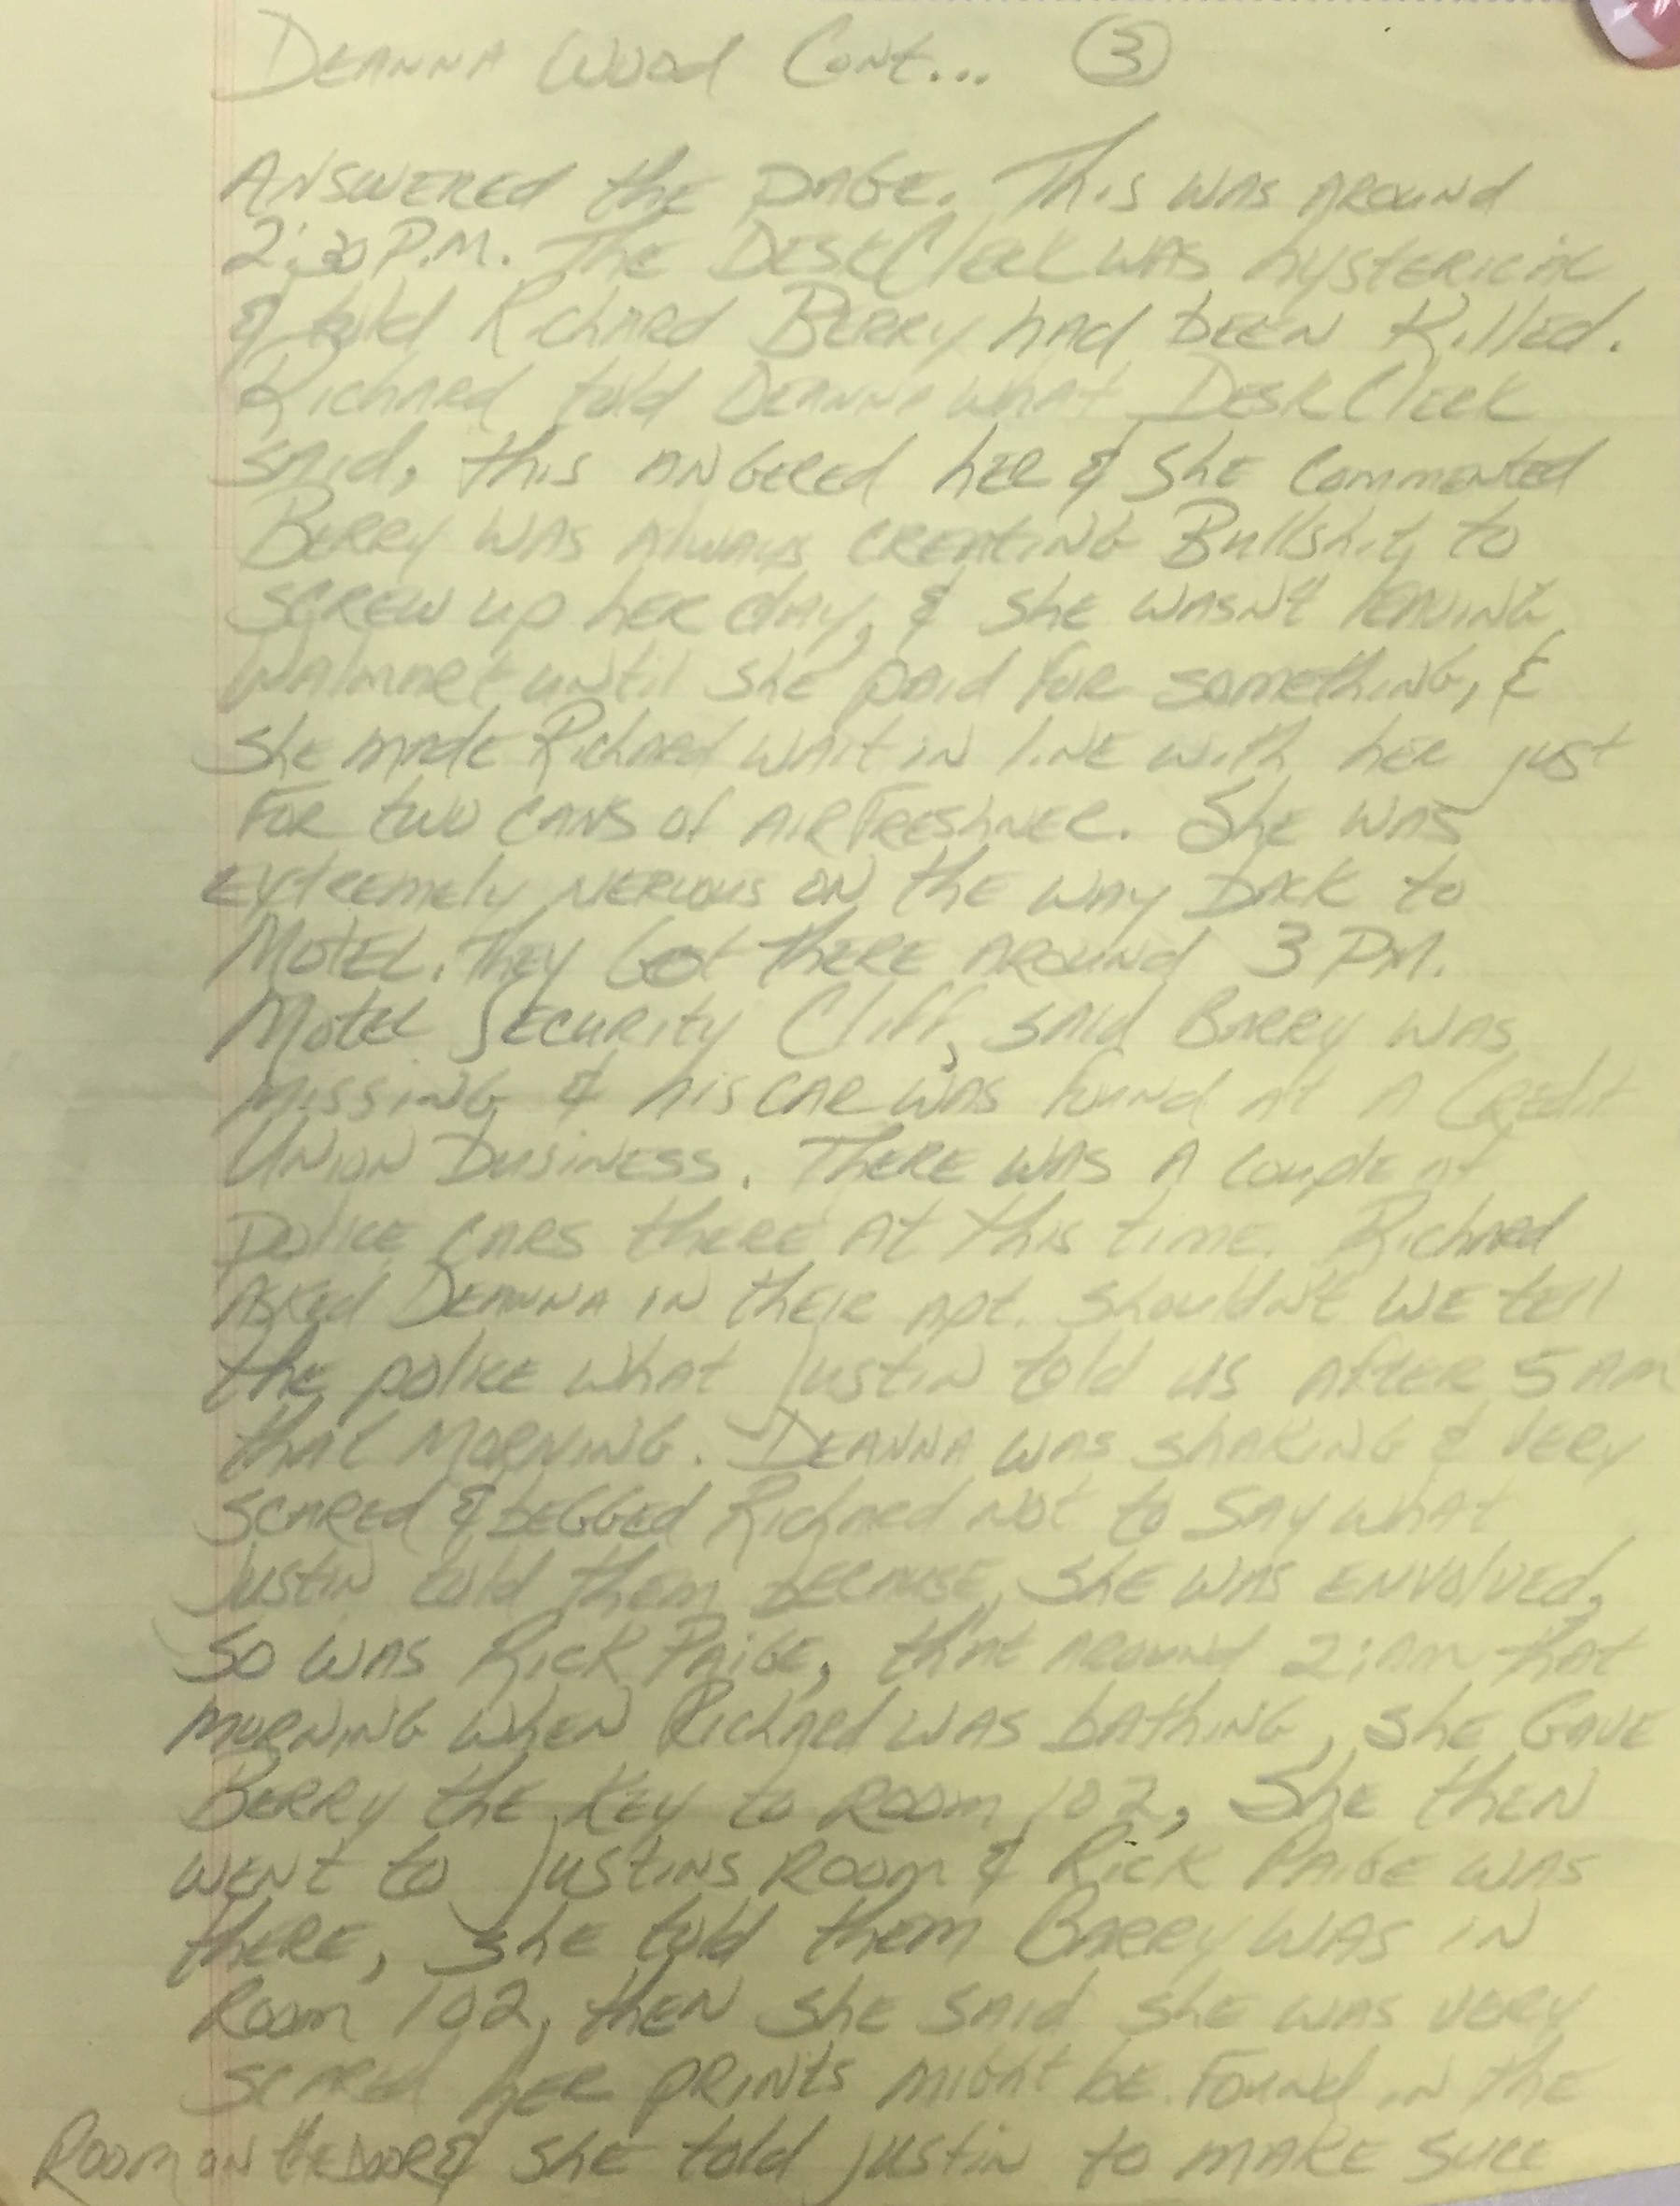 DEANNA WOOD CONT... ③
ANSWERED the PAGE. This WAS AROUND
2:30 P.M. The DESK CLERK WAS hystERICAL
& told RichARD BERRY had bEEN Killed.
RichARD told DEANNA what DESK CLERK
said, this ANGERED hER & ShE COmmENted
BERRY WAS AlwAys CREATING Bullshit, to
SCREW up hER dAy, & shE WASN't lEAVING
WAlmARt until shE pAid FOR somEthING, &
ShE mADE RichARd WAit IN liNE with hER just
FOR two CANS of AIRFRESHNER. ShE WAS
ExtREmEly NERVOUS ON thE WAy bACK to
MOTEL. ThEy Got thERE AROUND 3 PM.
MOTEL SECURity Cliff, SAid BARRY WAS
missiNG & his CAR WAS found At A CREdit
UNION busiNESS. ThERE WAS A couplE of
policE CARS thERE At this timE. RichARd
ASKEd DEANNA IN thEIR Apt. shouldn't WE tEll
thE policE whAt JustIN told us AftER 5 AM
thAt mORNING. DEANNA WAS shAKING & VERY
SCAREd & bEGGEd RichARd NOt to SAy whAt
JustiN told thEm bECAUSE, ShE WAS ENVolVEd,
SO WAS RICK PAIGE, thAt AROUND 2:Am thAt
mORNING whEN RichARd WAS bAthING, shE GAVE
BERRY thE KEy to ROOM 102, ShE thEN
WENt to JustiNs ROOm & RICK PAIGE WAS
thERE, ShE told thEm BARRY WAS IN
ROOM 102, thEN ShE SAid ShE WAS VERY
SCAREd hER pRINts MiGht bE FOUNd IN thE
ROOm ON thE DOOR & shE told JustiN to mAKE SURE